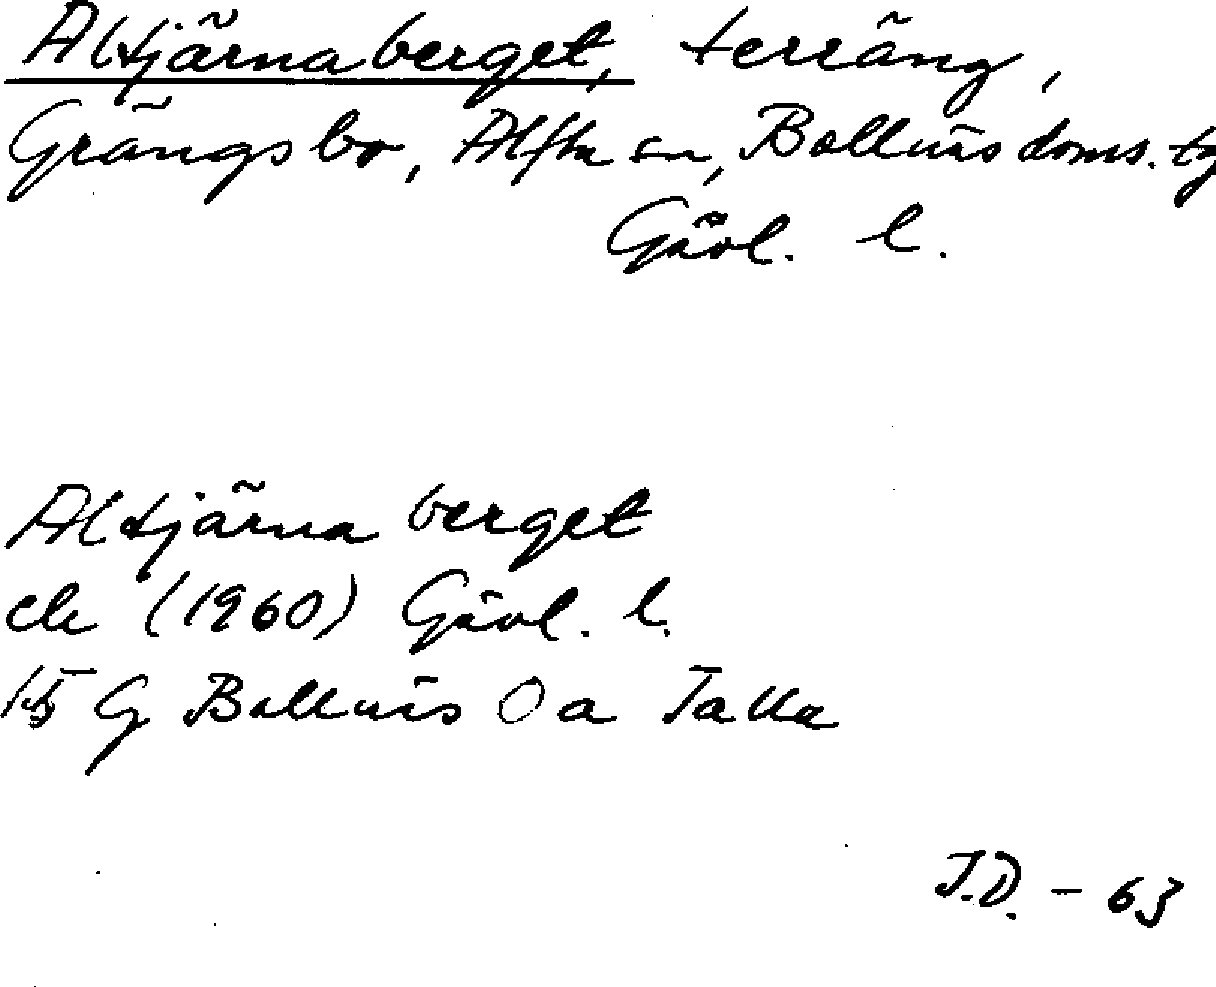 Altjärnaberget, terräng,
Grängsbo, Alfta sn, Bollnäs doms. tg
Gävl. l.
Altjärna berget
ek (1960) Gävl. l.
15 G Bollnäs O a
J.D. - 63